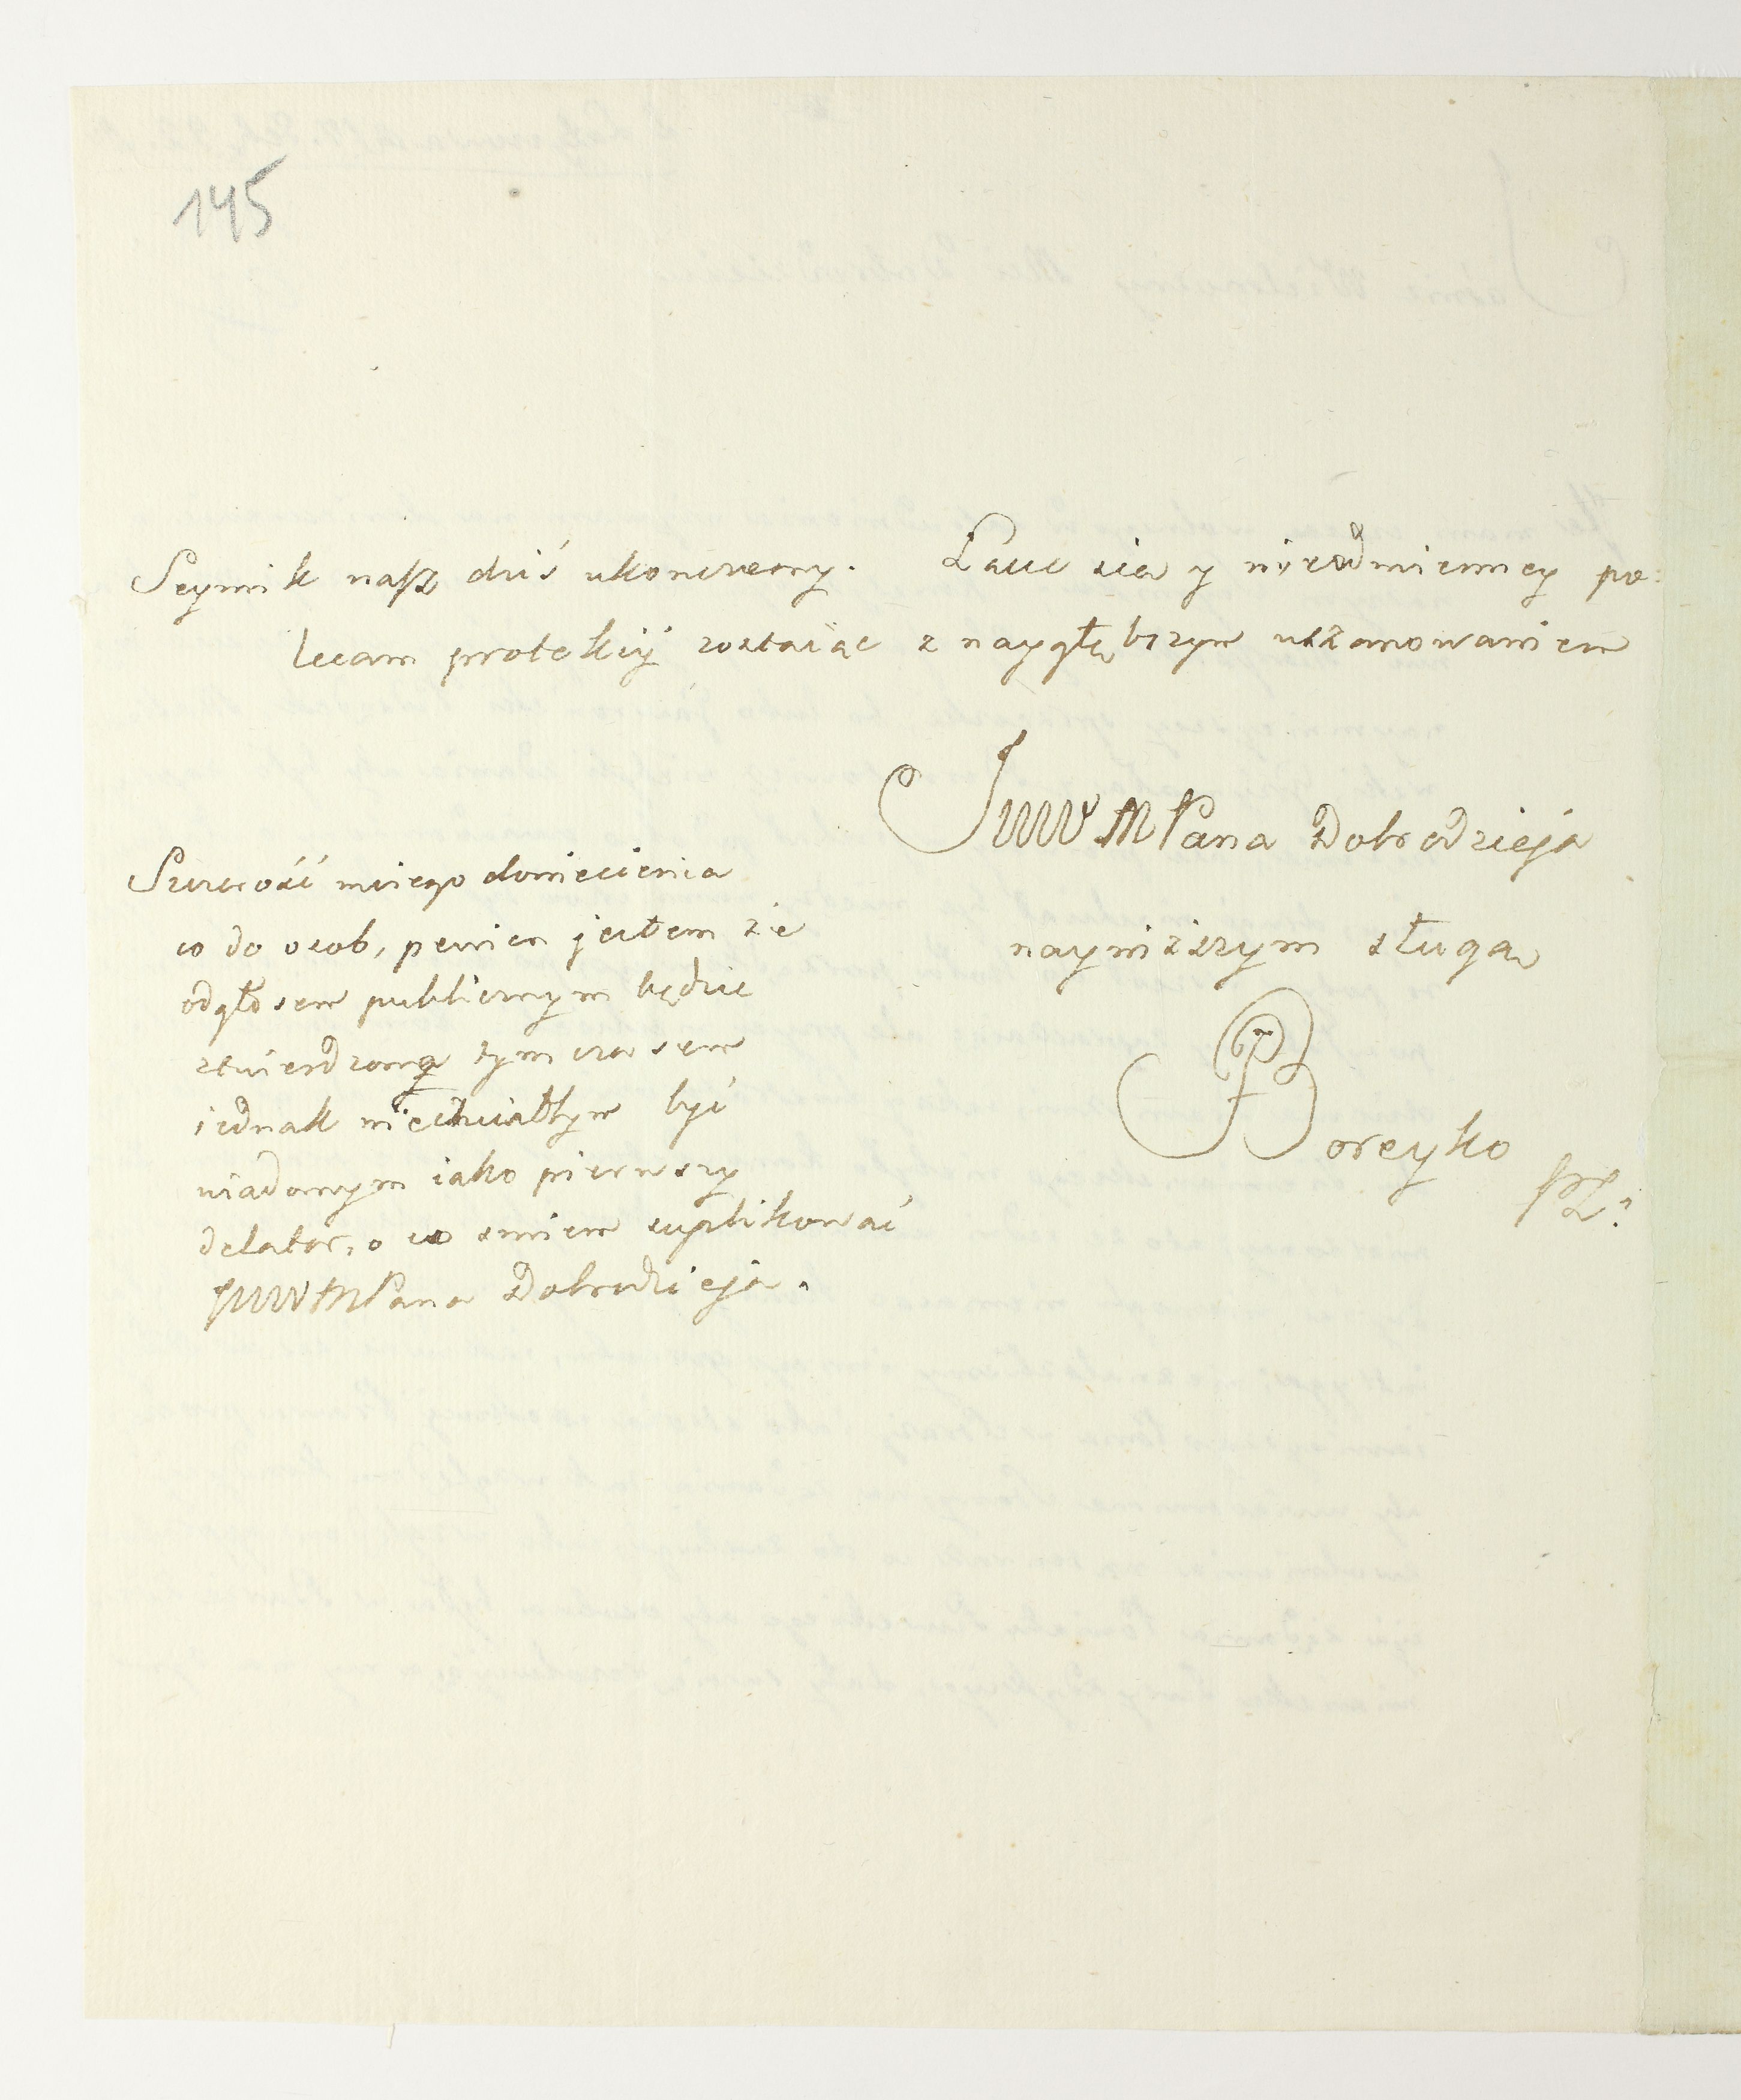 145
Seymik nasz dziś ukonczony. Łasce się y nieodmienney po:
lecam protekcij zostaiąc z naygłębszym uszanowaniem
JWW M Pana Dobrodzieja
nayniższym sługą
P Boreyko
PZ:
Szczerość moiego doniesienia
co do osob, pewien jestem że
odgłosem publicznym będzie
ztwierdzoną tym czasem
iednak niechciałbym być
wiadomym iako pierwszy
delator, o co smiem suplikować
JWWMPana Dobrodzieja.